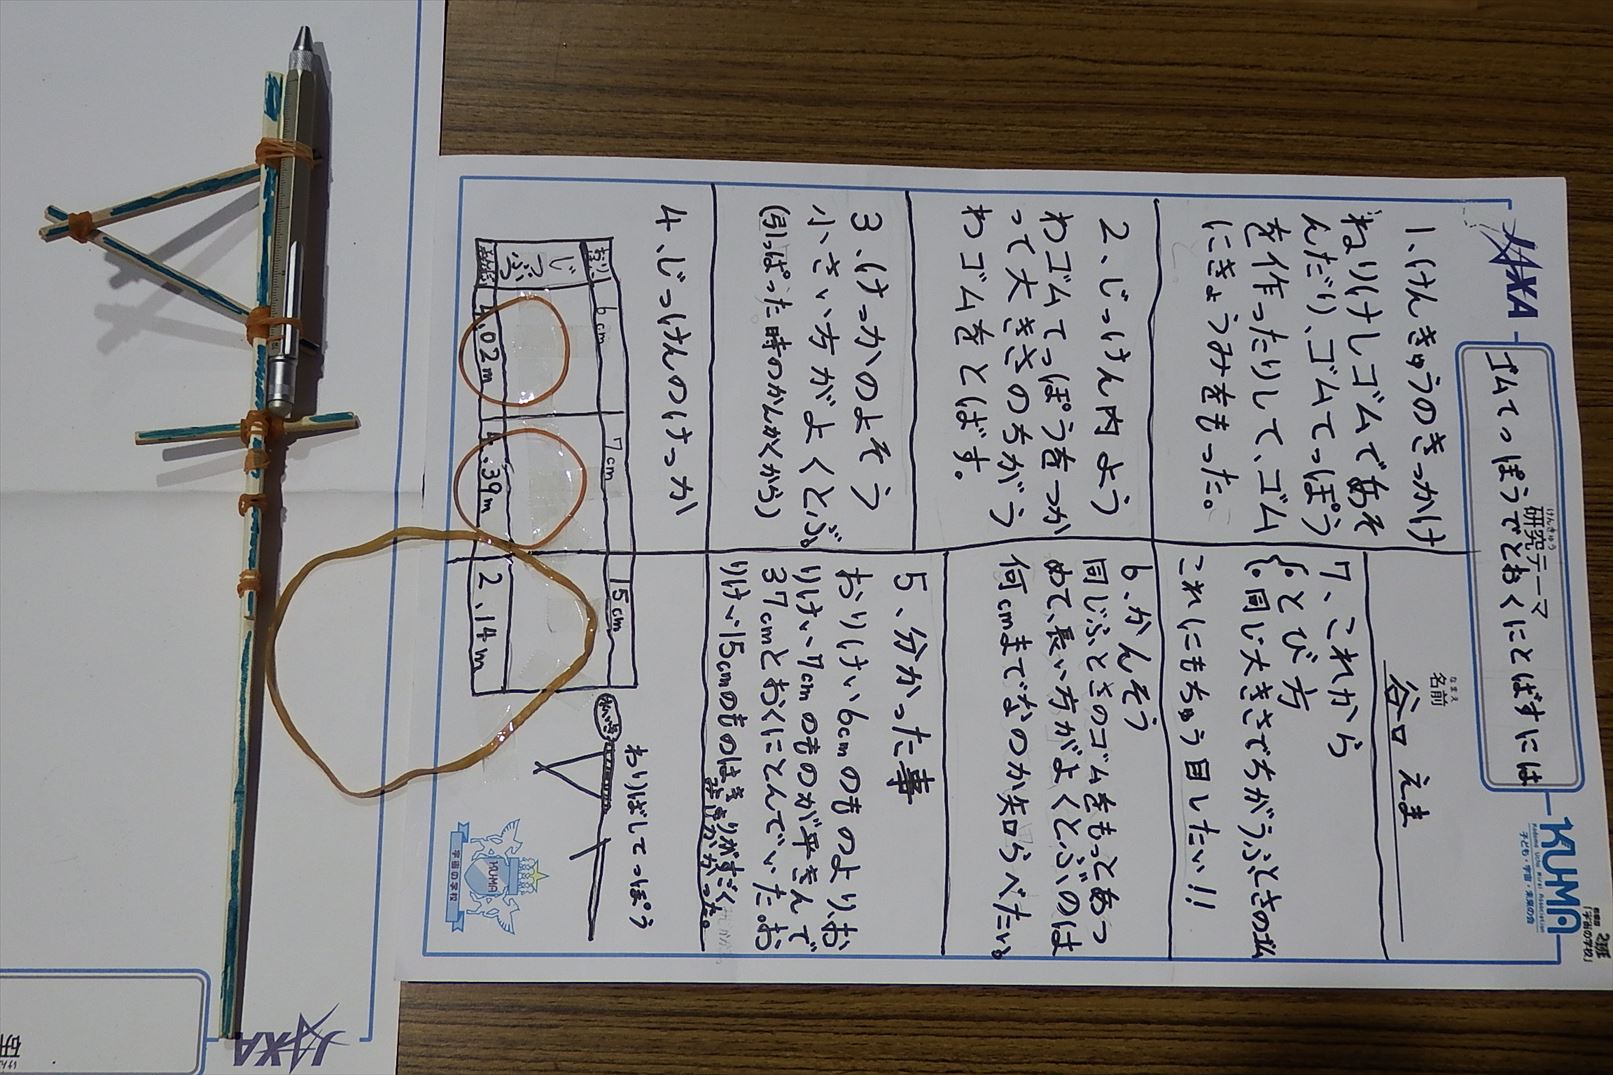 JAXA
研究テーマ
けんきゅう
ゴムてっぽうでとおくにとばすには
KUMA
子ども・宇宙・未来の会
「宇宙の学校」
名前
なまえ
谷口 えま
1、けんきゅうのきっかけ
ねりけしゴムであそ
んだり、ゴムてっぽう
を作ったりして、ゴム
にきょうみをもった。
2、じっけん内よう
わゴムてっぽうをつか
って大きさのちがう
わゴムをとばす。
3、けっかのよそう
小さい方がよくとぶ。
(引っぱった時のかんかくから)
4、じっけんのけっか
おりけい
6cm
7cm
15cm
じつぶつ
.02m
.39m
2.14m
わりばしてっぽう
5、分かった事
おりけい6cmのものより、お
りけい7cmのもののが平きんで
37cmとおくにとんでいた。お
りけい15cmのものは
がかかった。
6、かんそう
同じふとさのゴムをもっとあつ
めて、長い方がよくとぶのは
何cmまでなのか知らべたい。
7、これから
・とび方
・同じ大きさでちがうふとさのゴム
これにもちゅう目したい!!
KUMA
宇宙の学校
JAXA